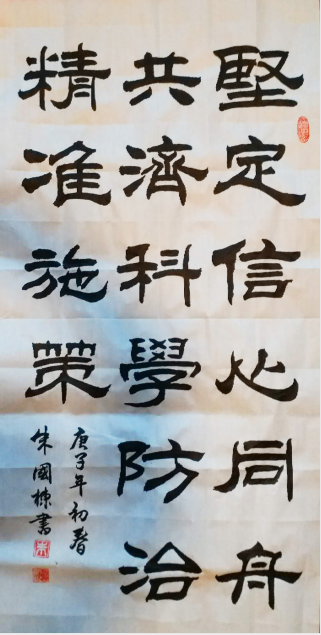 堅定信心同舟
共濟科學防治
精准施策
庚子年初春
朱國棟書